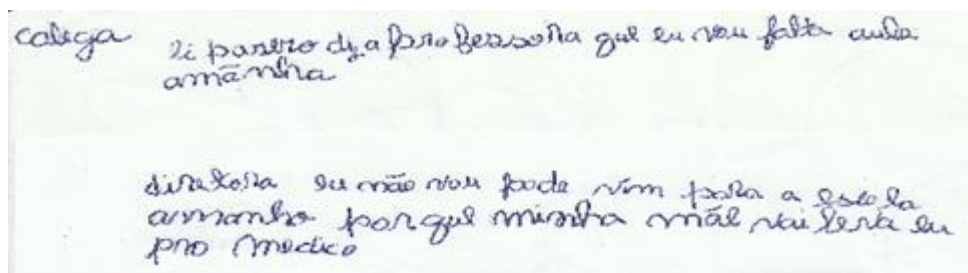 colega ei parsero diz a professora que eu vou falta aula
amãnhã
diretora eu não vou pode vim para a escola
amanha porque minha mãe vai leva eu
pro medico